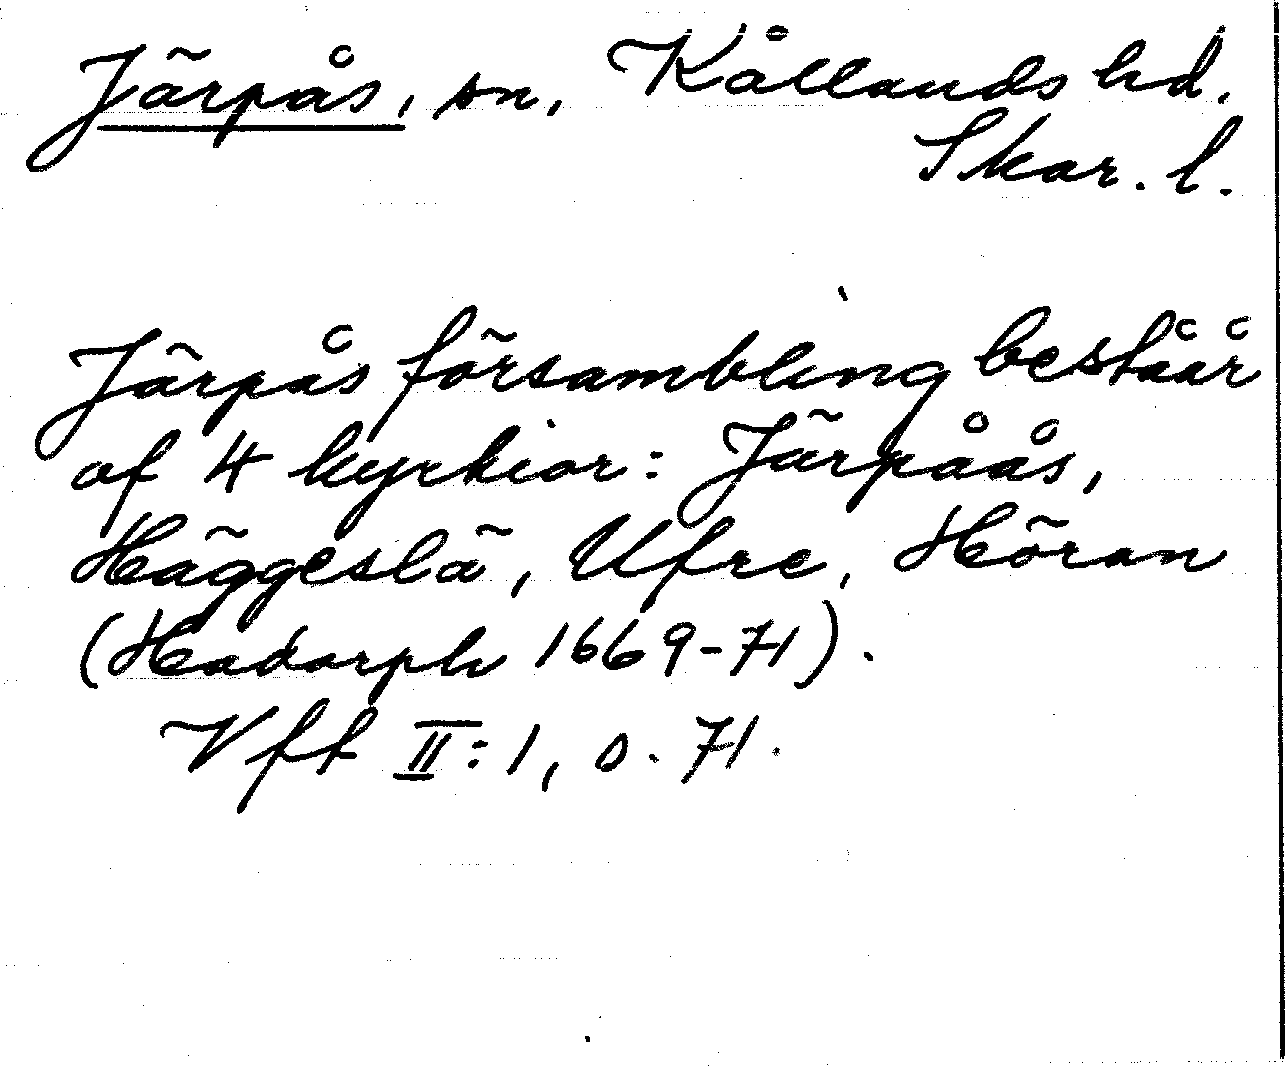 Järpås, sn, Kållands hd.
Skar. l.
Järpås försambling beståår
af 4 kyrkior: Järpåås,
Häggeslä, Ufre, Höran
(Hadorph 1669-71).
Vff II:1, s. 71.